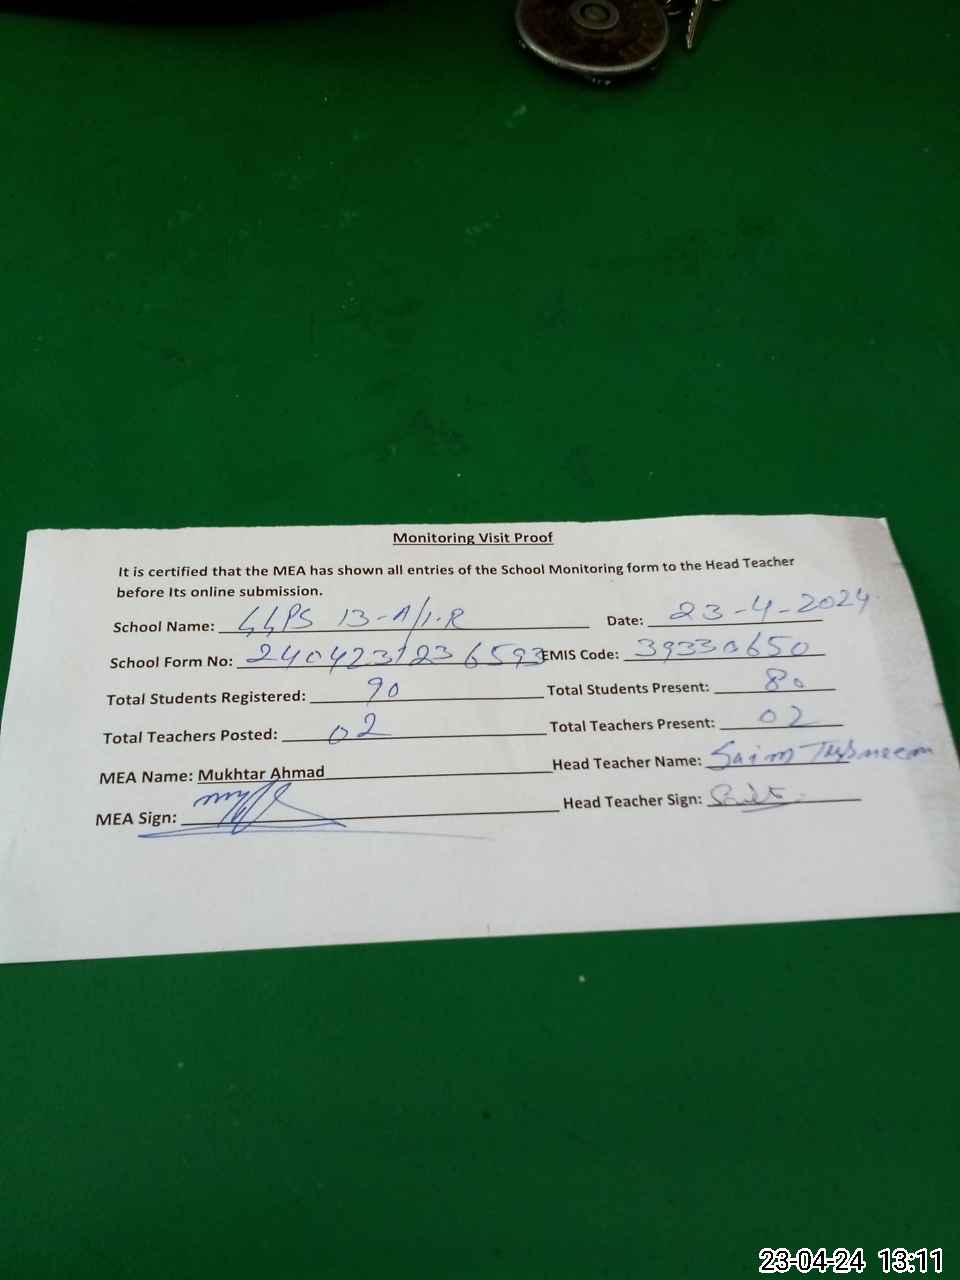 Monitoring Visit Proof
It is certified that the MEA has shown all entries of the School Monitoring form to the Head Teacher
before Its online submission.
School Name: GGPS 13-A/1.R Date: 23-4-2024
School Form No: 2404231236593 EMIS Code: 39330650
Total Students Registered: 90 Total Students Present: 80
Total Teachers Posted: 02 Total Teachers Present: 02
MEA Name: Mukhtar Ahmad Head Teacher Name: Saim Tasneem
MEA Sign: Head Teacher Sign:
23-04-24 13:11